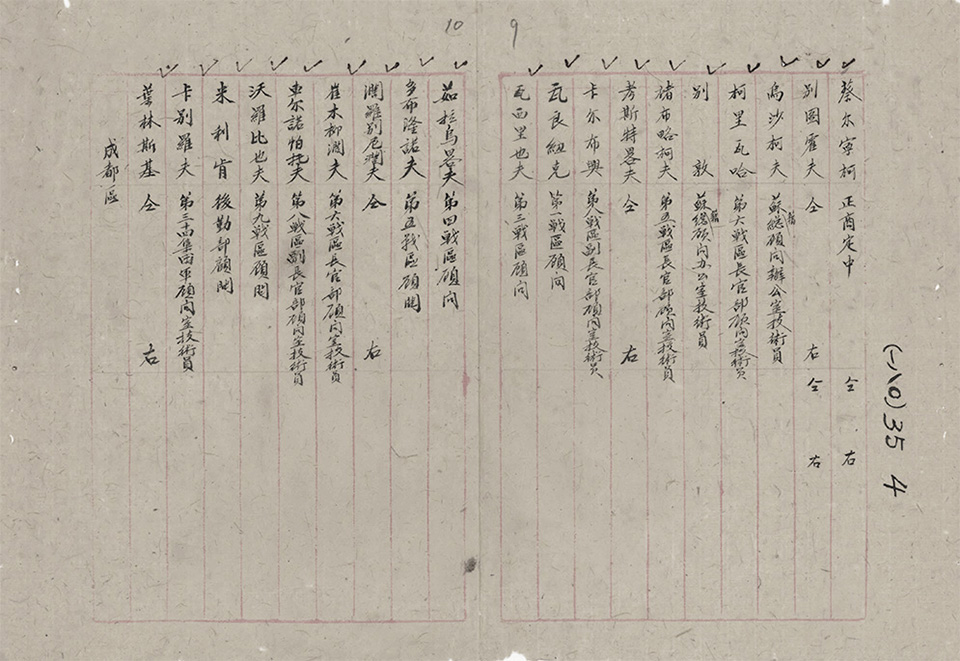 9
蔡尔寧柯 正商定中 仝 右
别国霍夫 仝 右 仝 右
烏沙柯夫 蘇總顧問辦公室技術員
柯里瓦哈 第六戰區長官部顧問室技術員
别敦 蘇總顧問办公室技術員
褚布略柯夫 第五戰區長官部顧問室技術員
考斯特畧夫 仝 右
卡尔布興 第八戰區副長官部顧問室技術員
瓦良紐克 第一戰區顧問
瓦西里也夫 第三戰區顧問
10
茹杉烏畧夫 第四戰區顧問
多布隆諾夫 第五戰區顧問
闊羅别尼澗夫 仝 右
崔木柳澗夫 第六戰區長官部顧問室技術員
車尔諾帕托夫 第八戰區副長官部顧問室技術員
沃羅比也夫 第九戰區顧問
米利肯 後勤部顧問
卡别羅夫 第三十四集團軍顧問室技術員
葉林斯基 仝 右
成都區
35 4